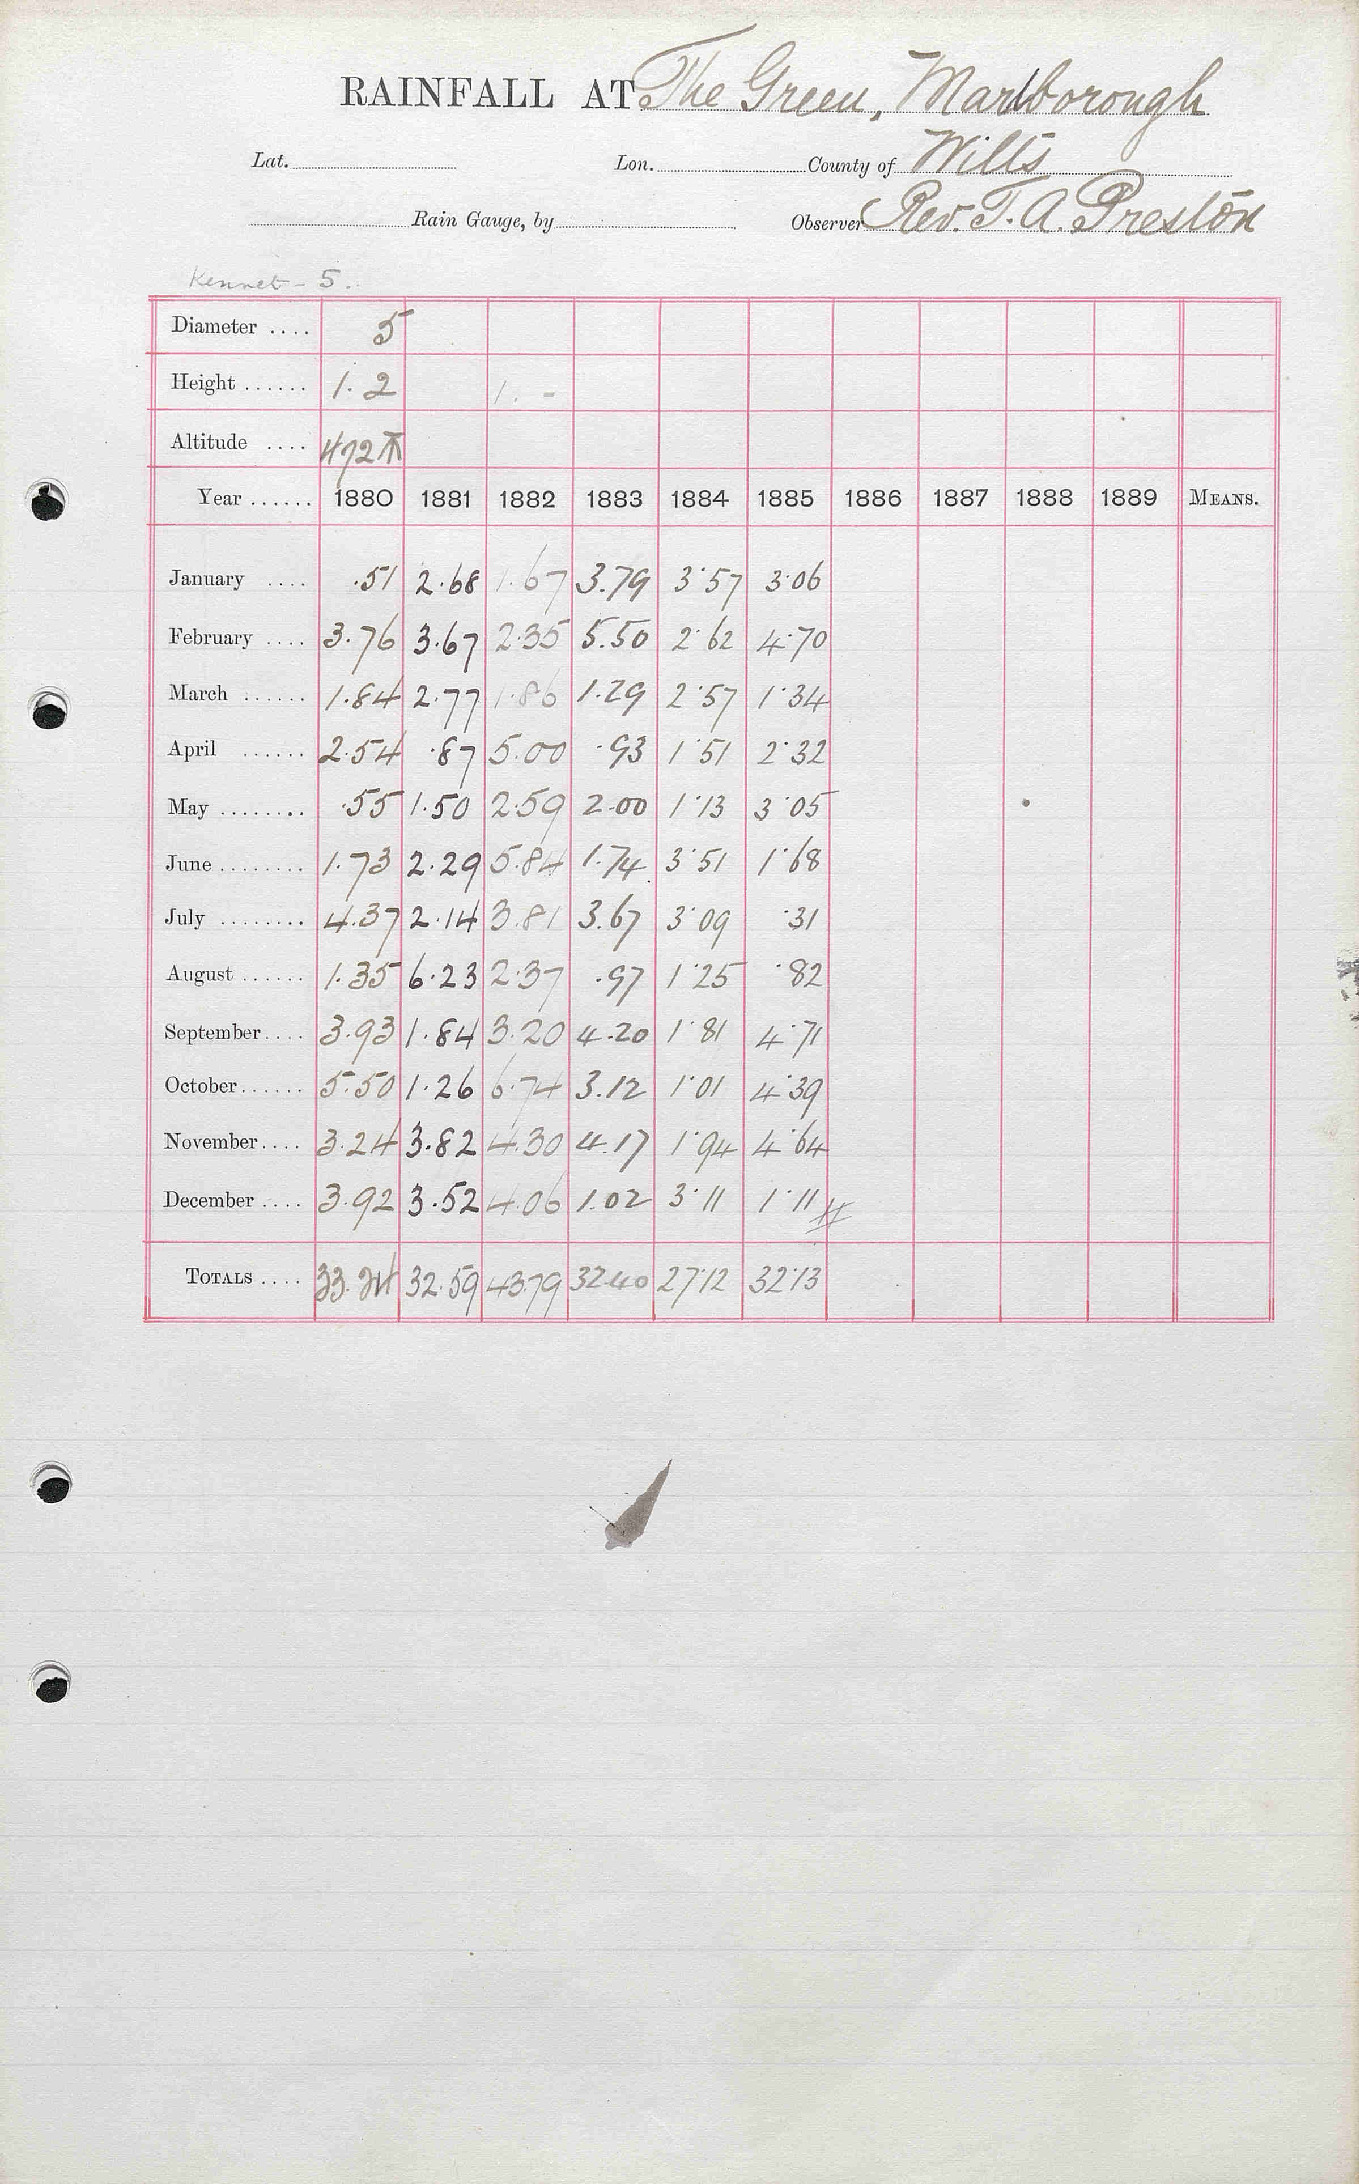 RAINFALL AT The Green, Marlborough
Lat. Lon. County of Wilts
Rain Gauge, by Observer Rev. T. A. Preston
Kennet - 5.
Diameter .... 5
Height ...... 1. 2 1. -
Altitude .... 472
Year ...... 1880 1881 1882 1883 1884 1885 1886 1887 1888 1889 MEANS.
January .... .51 2.68 1.67 3.79 3.57 3.06
February .... 3.76 3.67 2.35 5.50 2.62 4.70
March ...... 1.84 2.77 1.86 1.29 2.57 1.34
April ...... 2.54 .87 5.00 .93 1.51 2.32
May ........ .55 1.50 2.59 2.00 1.13 3.05
June ........ 1.73 2.29 5.84 1.74 3.51 1.68
July ........ 4.37 2.14 3.81 3.67 3.09 .31
August ...... 1.35 6.23 2.37 .97 1.25 .82
September .... 3.93 1.84 3.20 4.20 1.81 4.71
October ...... 5.50 1.26 6.74 3.12 1.01 4.39
November .... 3.24 3.82 4.30 4.17 1.94 4.64
December .... 3.92 3.52 4.06 1.02 3.11 1.11
TOTALS .... 33.24 32.59 43.79 32.40 27.12 32.13